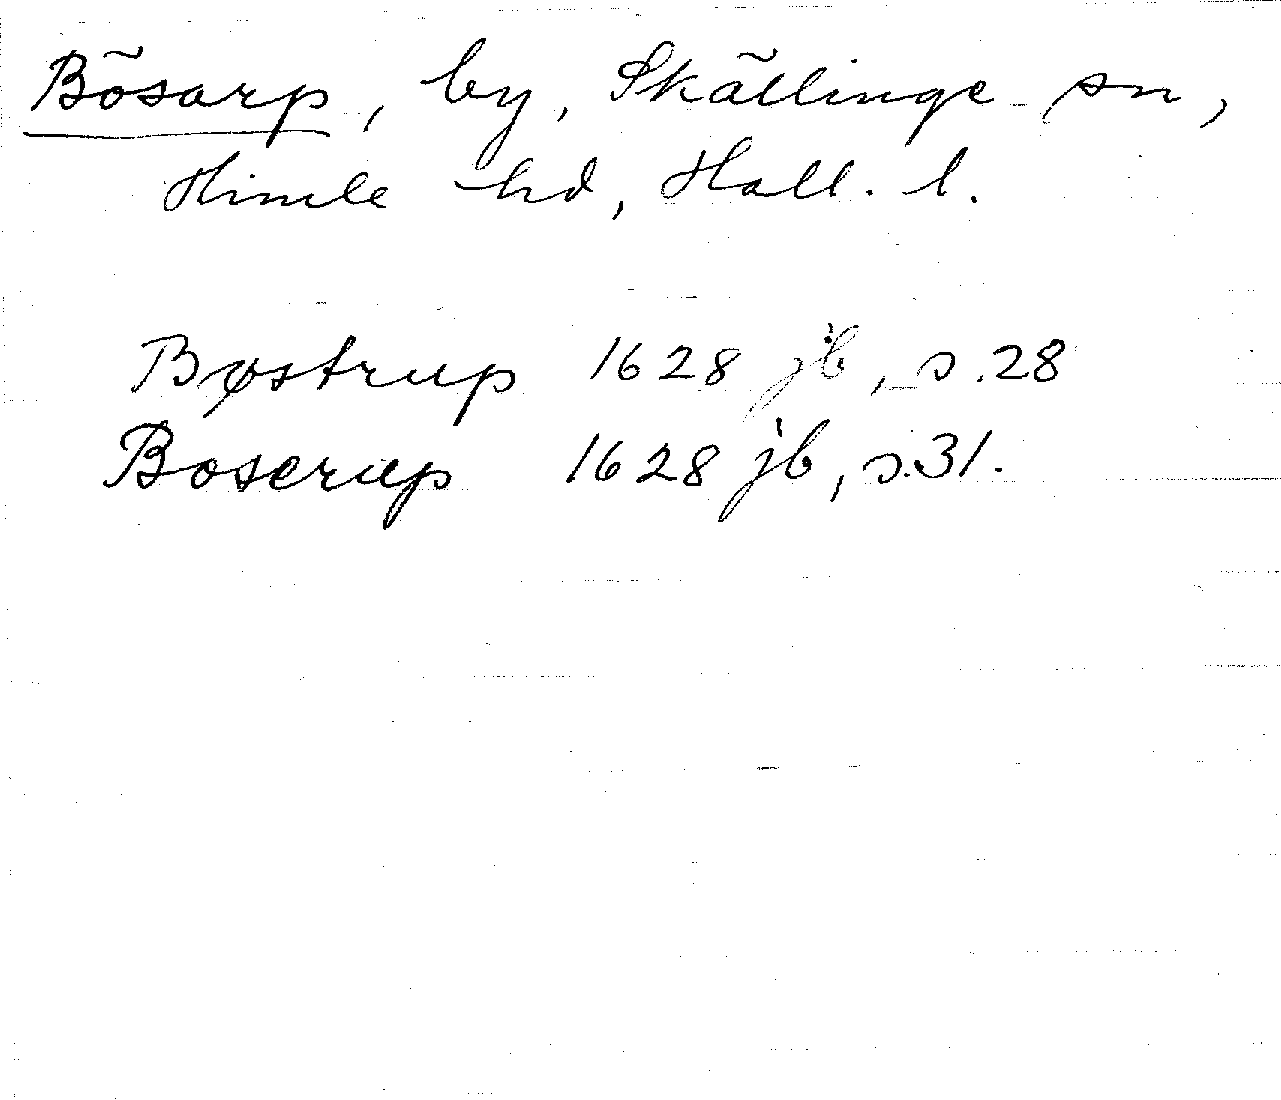 Bösarp, by, Skällinge sn,
Himle hd, Hall. l.
Bøstrup 1628 jb, s.28
Boserup 1628 jb, s.31.